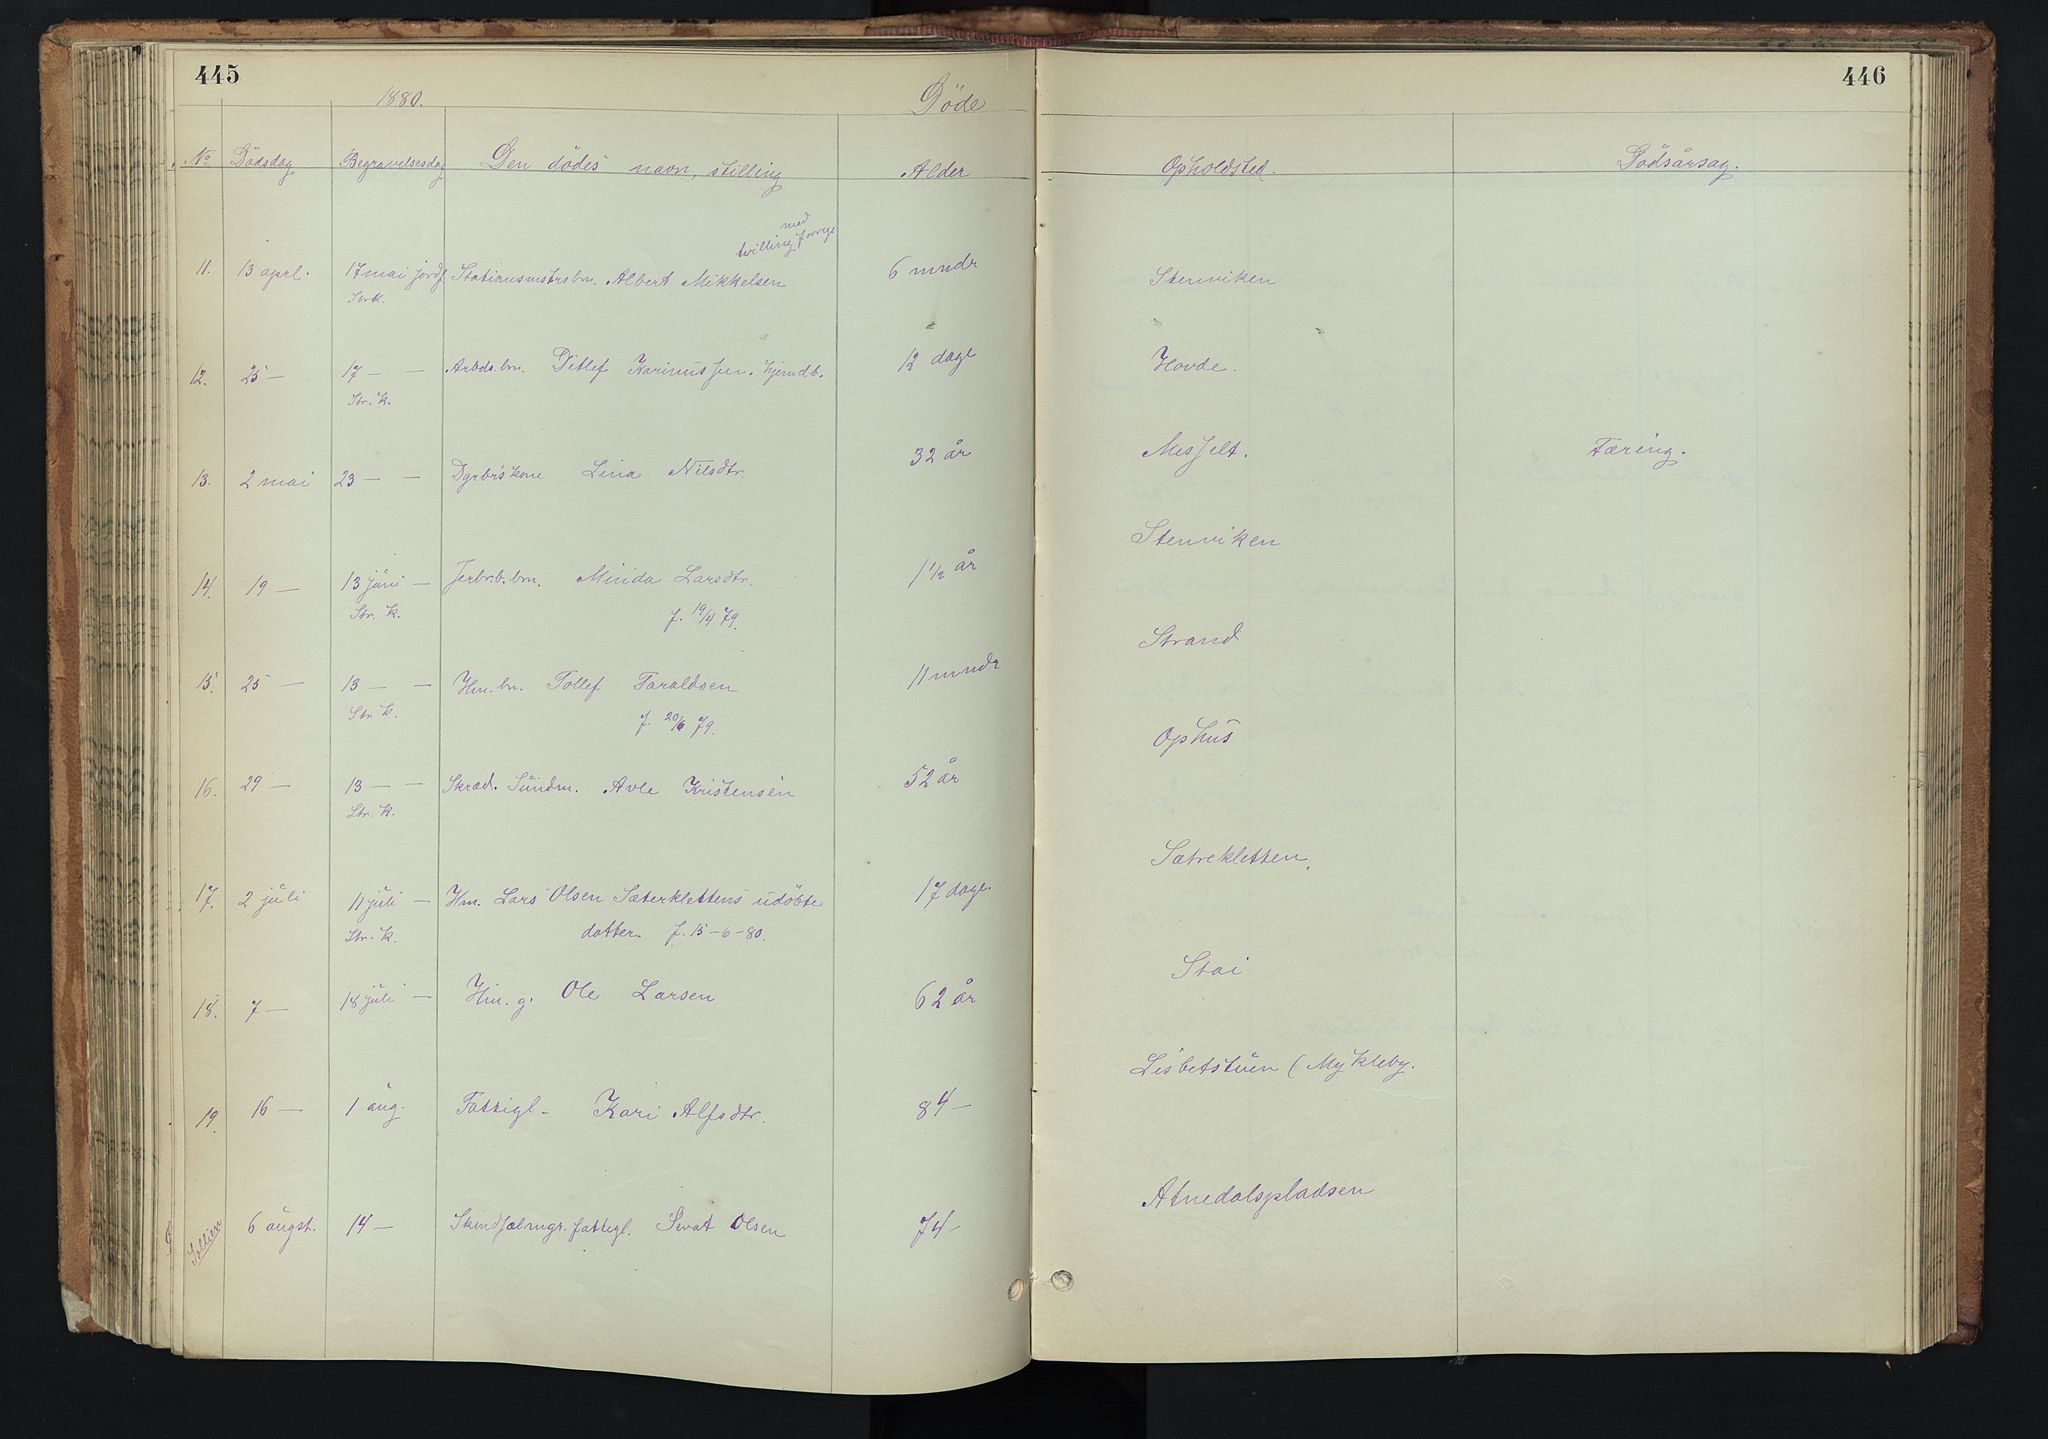 445
446
1880.
Döde
No Dödsdag Begravelsesdag Den dödes navn, stilling Alder Opholdsted. Dödsårsag.
med
tvilling forrige
11. 13 aprl. 17 mai jordf. Stationsmstrsbn. Albert Mikkelsen 6 mndr Stenviken
Str.k.
12. 25 — 17 — — Arbds.bn. Ditlef Karinussen. hjemdb. 12 dage Hovde.
Str.k.
13. 2 mai 23 — — Dgrbr's kone Lina Nilsdtr. 32 år Messelt. Tæring.
14. 19 — 13 juni — Jerbr.b.bn. Minda Larsdtr. 1 1/2 år Stenviken
Str. k. f. 19/4 79.
15. 25 — 13 — — Hm. bn. Tollef Taraldsen 11 mndr Strand
Str k. f. 20/6 79.
16. 29 — 13 — — Skræd. Sundm. Avle Kristensen 52 år Ophus
Str. k.
17. 2 juli 11 juli — Hm. Lars Olsen Sæterklettens udöbte 17 dage. Sætrekletten.
Str. k. datter. f. 15-6-80.
18. 7 — 18 juli — Hm. g. Ole Larsen 62 år Stai
19. 16 — 1 aug. Fattigl- Kari Alfsdtr. 84 — Lisbetstuen (Mykleby.
Sollien 6 augst. 14 — Skindfælmgr. fattigl. Sivat Olsen 74 - Atnedalspladsen